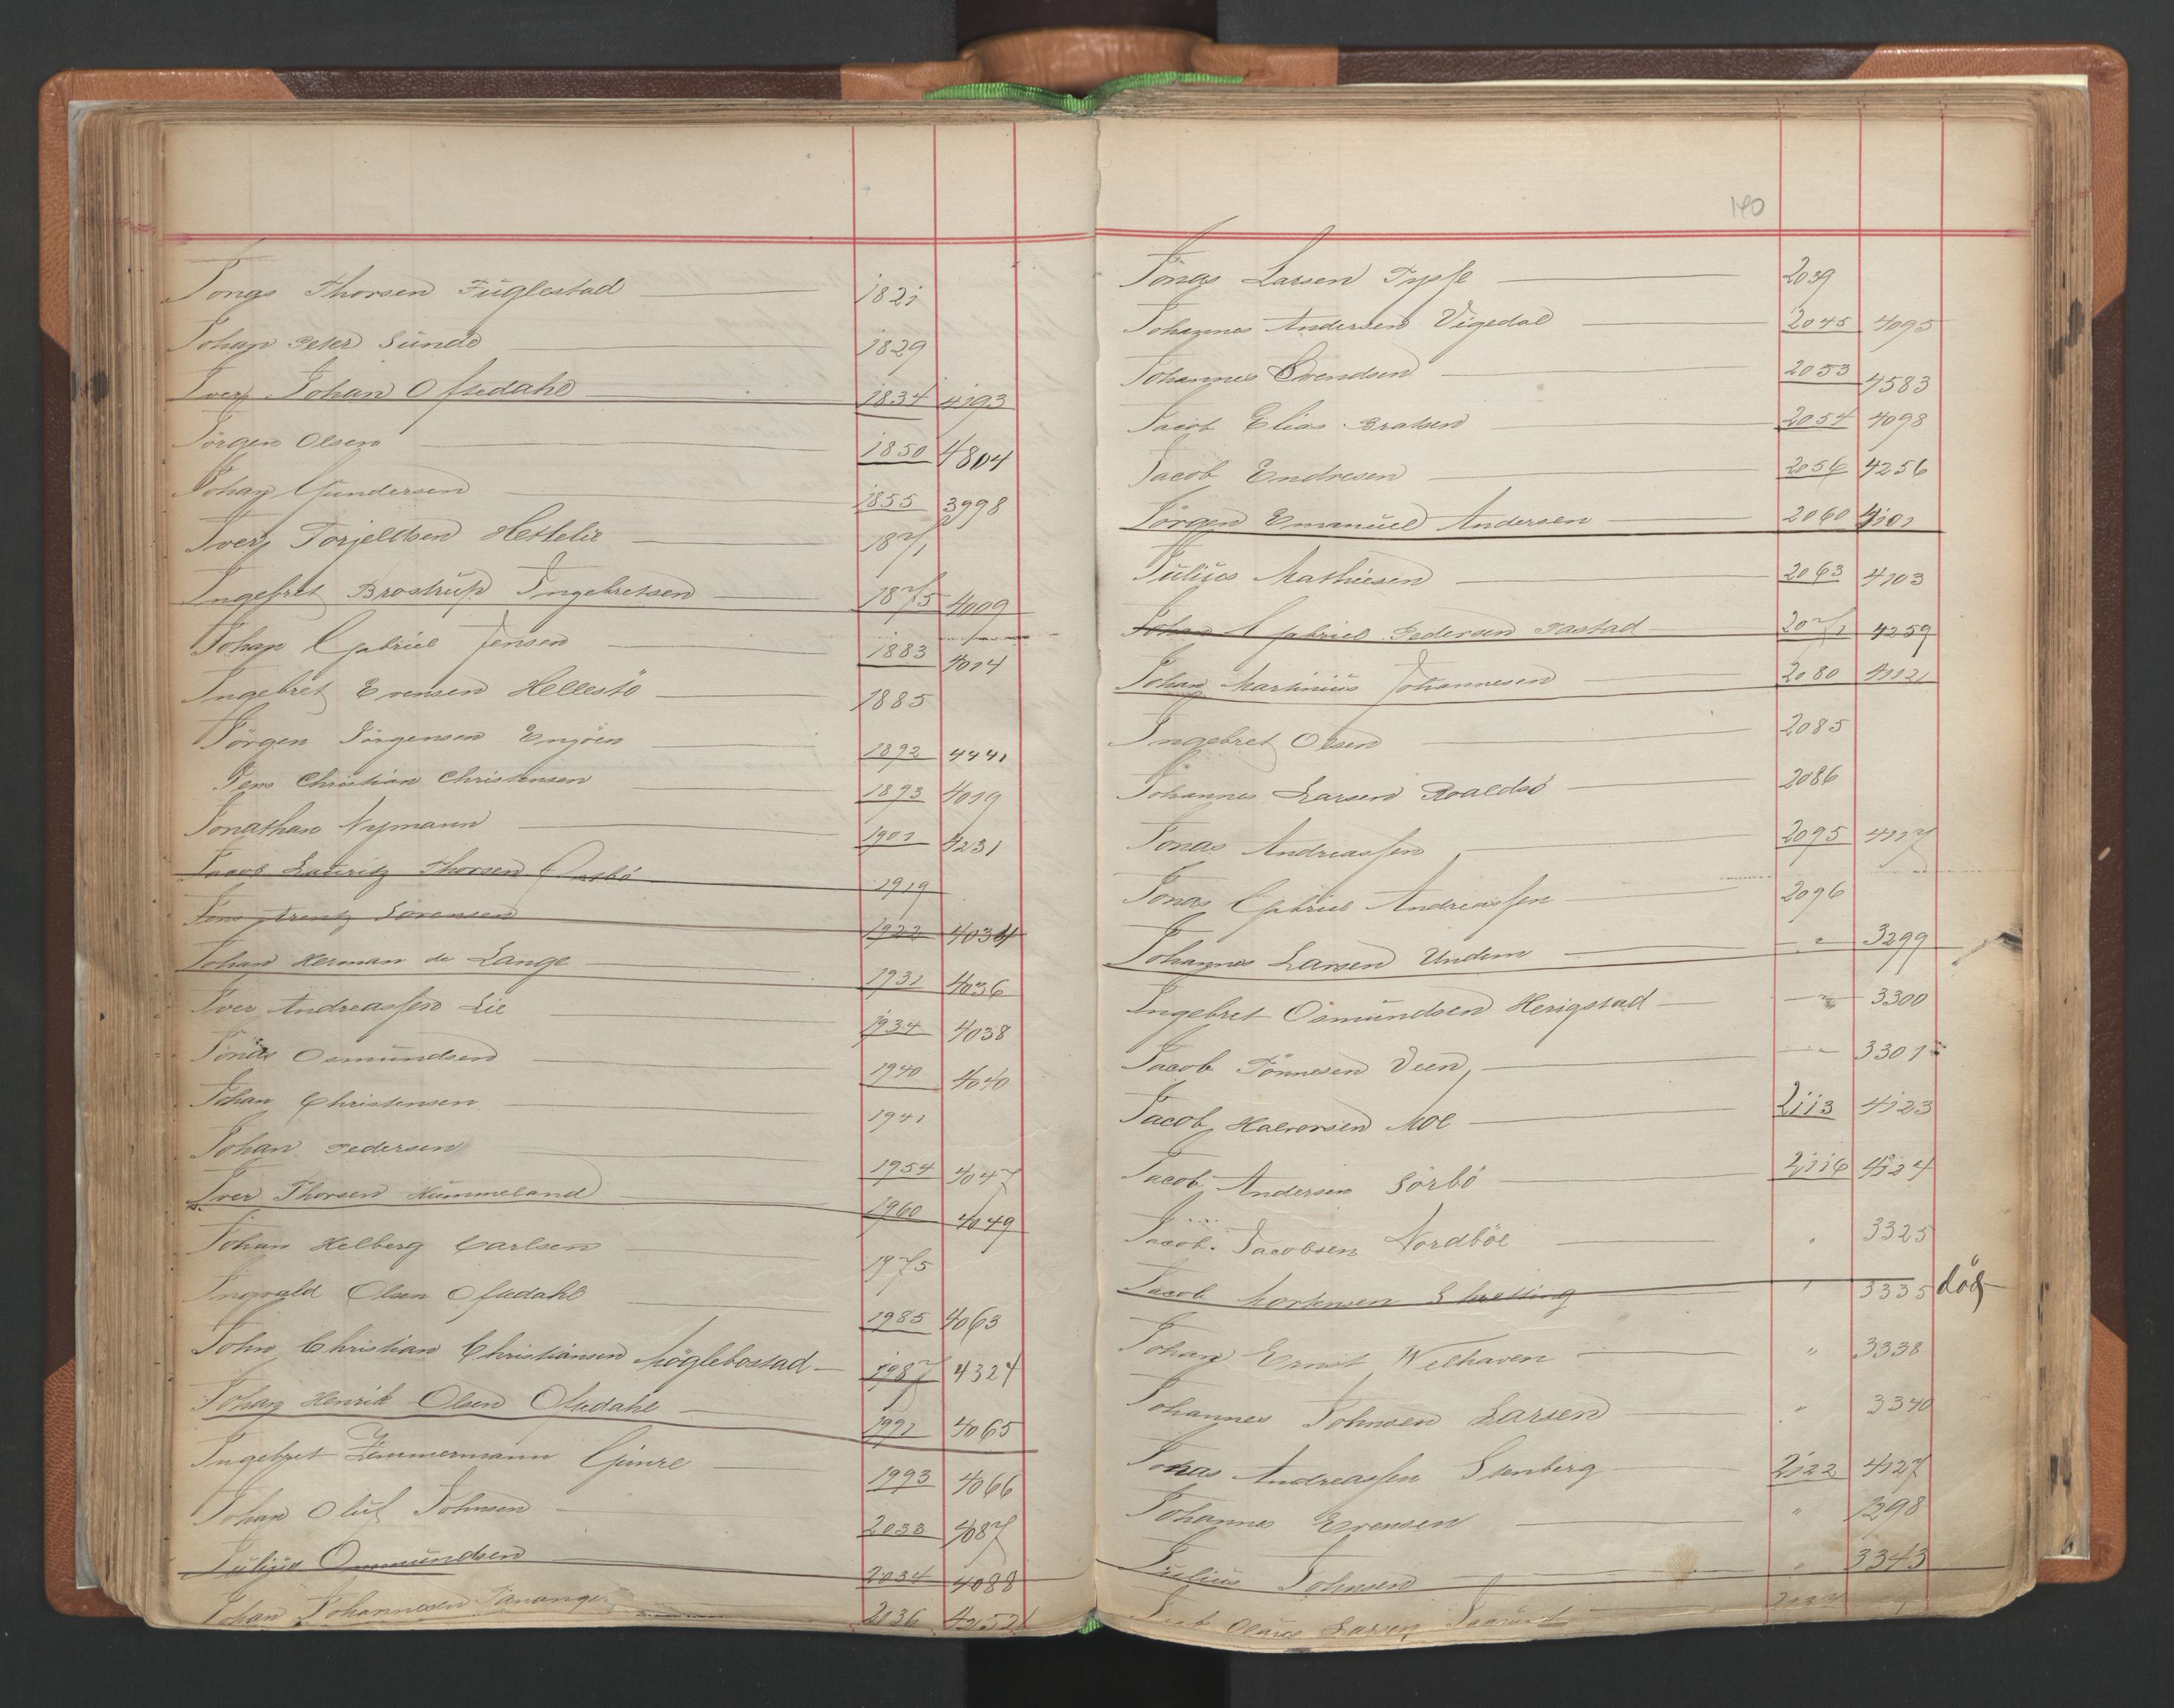 Jonas Thorsen Fuglestad 1821
Johan Peter Sunde 1829
Iver Johan Ofstedahl 1834 4193
Jörgen Olsen 1850 4804
Johan Gundersen 1855 3998
Iver Torjeldsen Hettelie 1871
Ingebret Brostrup Ingebretsen 1875 4009
Johan Gabriel Jensen 1883 4014
Ingebret Evensen Hellestö 1885
Jörgen Jörgensen Engöen 1892 4441
Jens Christian Christensen 1893 4019
Jonathan Nymann 1901 4231
Jacob Lauritz Thorsen 1919
Jens Arentz Sörensen 1922 4034
Johan Herman de Lange 1931 4036
Iver Andreassen Lie 1934 4038
Jonas Osmundsen 1940 4040
Johan Christensen 1941
Johan Pedersen 1954 4047
Iver Thorsen Hummeland 1960 4049
Johan Helberg Carlsen 1975
Ingvald Olsen Ofstedahl 1985 4063
John Christian Christiansen Möglebostad 1987 4324
Johan Henrik Olsen Ofstedahl 1991 4065
Ingebret Zimmermann Gimre 1993 4066
Johan Oluf Johnsen 2033 4087
Julius Osmundsen 2034 4088
Johan Johannesen 2036
140
Jonas Larsen 2039
Johannes Andersen Vigedal 2045 4095
Johannes Svendsen 2053 4583
Jacob Elias Bratsen 2054 4098
Jacob Endresen 2056 4256
Jörgen Emanuel Andersen 2060 4101
Julius Mathiesen 2063 4103
Johan Gabriel Pedersen Tastad 2071 4259
Johan Martinius Johannesen 2080 4112
Ingebret Olsen 2085
Johannes Larsen Roaldsö 2086
Jonas Andreassen 2095 4117
Jonas Gabriel Andreassen 2096
Johannes Larsen Undem — " — 3299
Ingebret Osmundsen Herigstad — " — 3300
Jacob Tönnesen Veen — " — 3301
Jacob Halvorsen Moe 2113 4123
Jacob Andersen Sörbö 2116 4124
Jacob Jacobsen Nordböe " 3325
Jacob Mortensen Skretting " 3335 död
Johan Ernst Welhaven " 3338
Johannes Johnsen Larsen " 3340
Jonas Andreassen Stenberg 2122 4127
Johannes Evensen " 1298
Julius Johnsen " 3343
Jacob Olaus Larsen